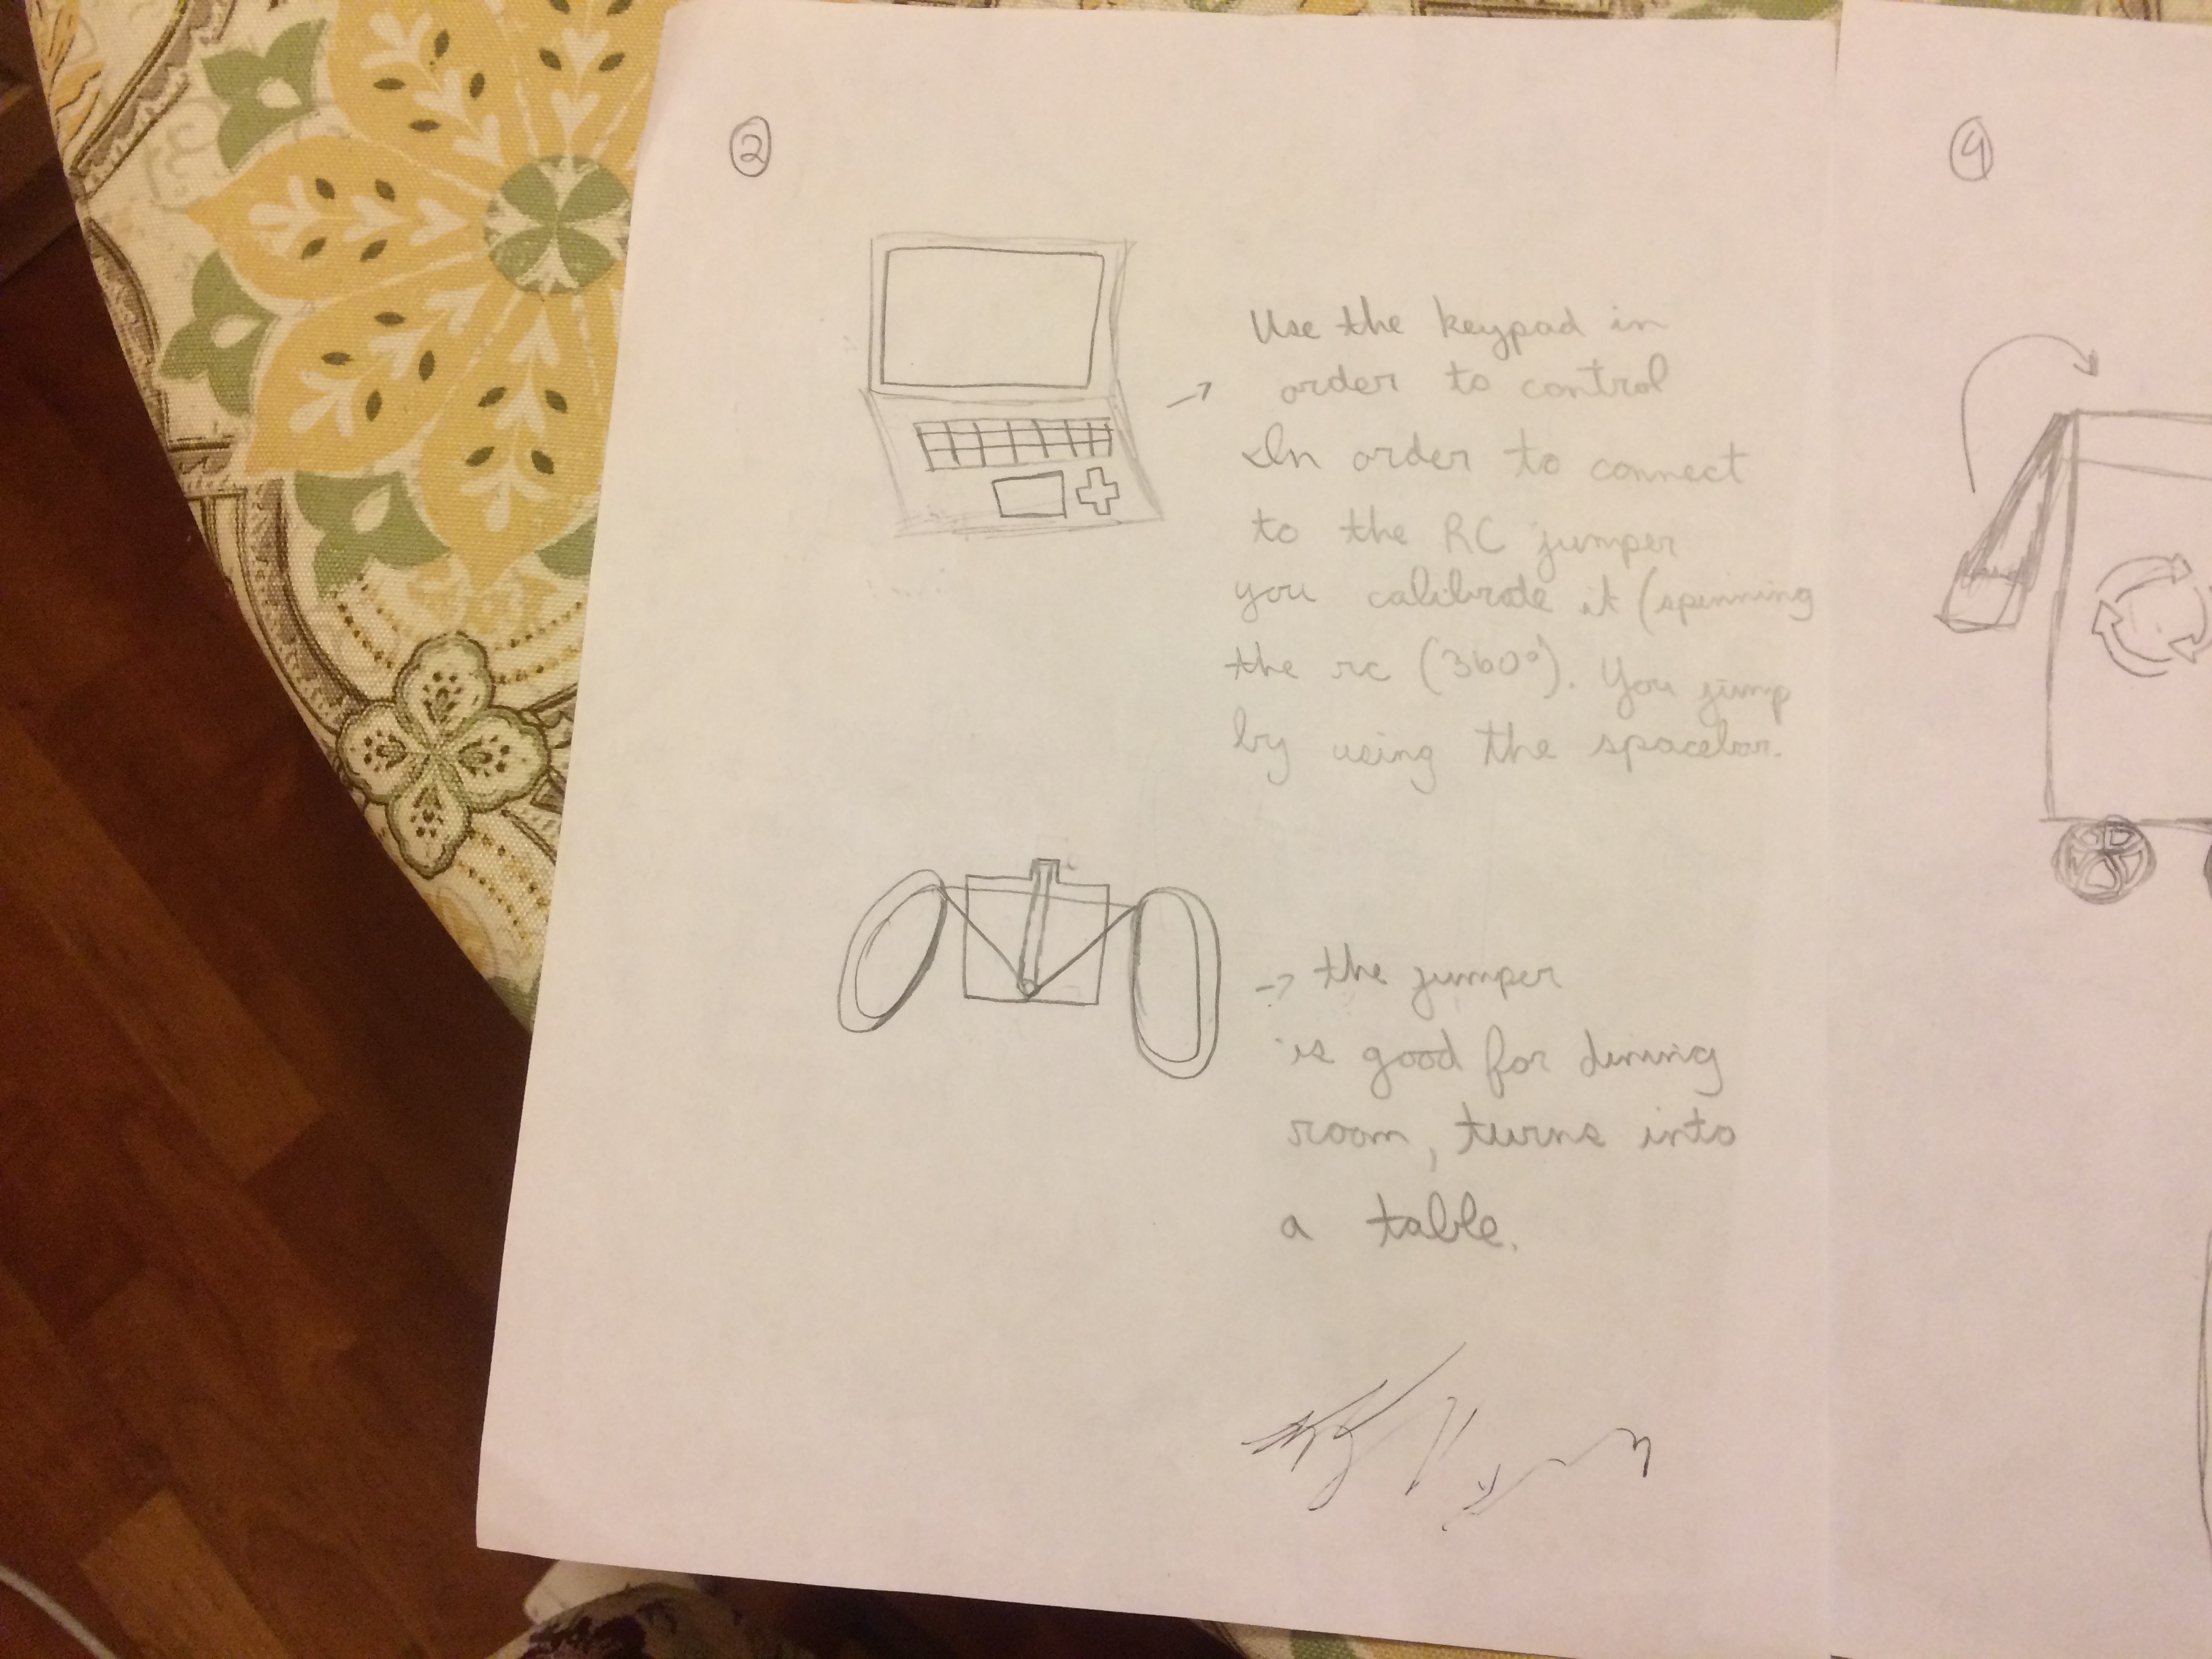 2
Use the keypad in
order to control
In order to connect
to the RC jumper
you calibrate it (spinning
the rc (360°). You jump
by using the spacebar.
the jumper
is good for dining
room, turns into
a table.